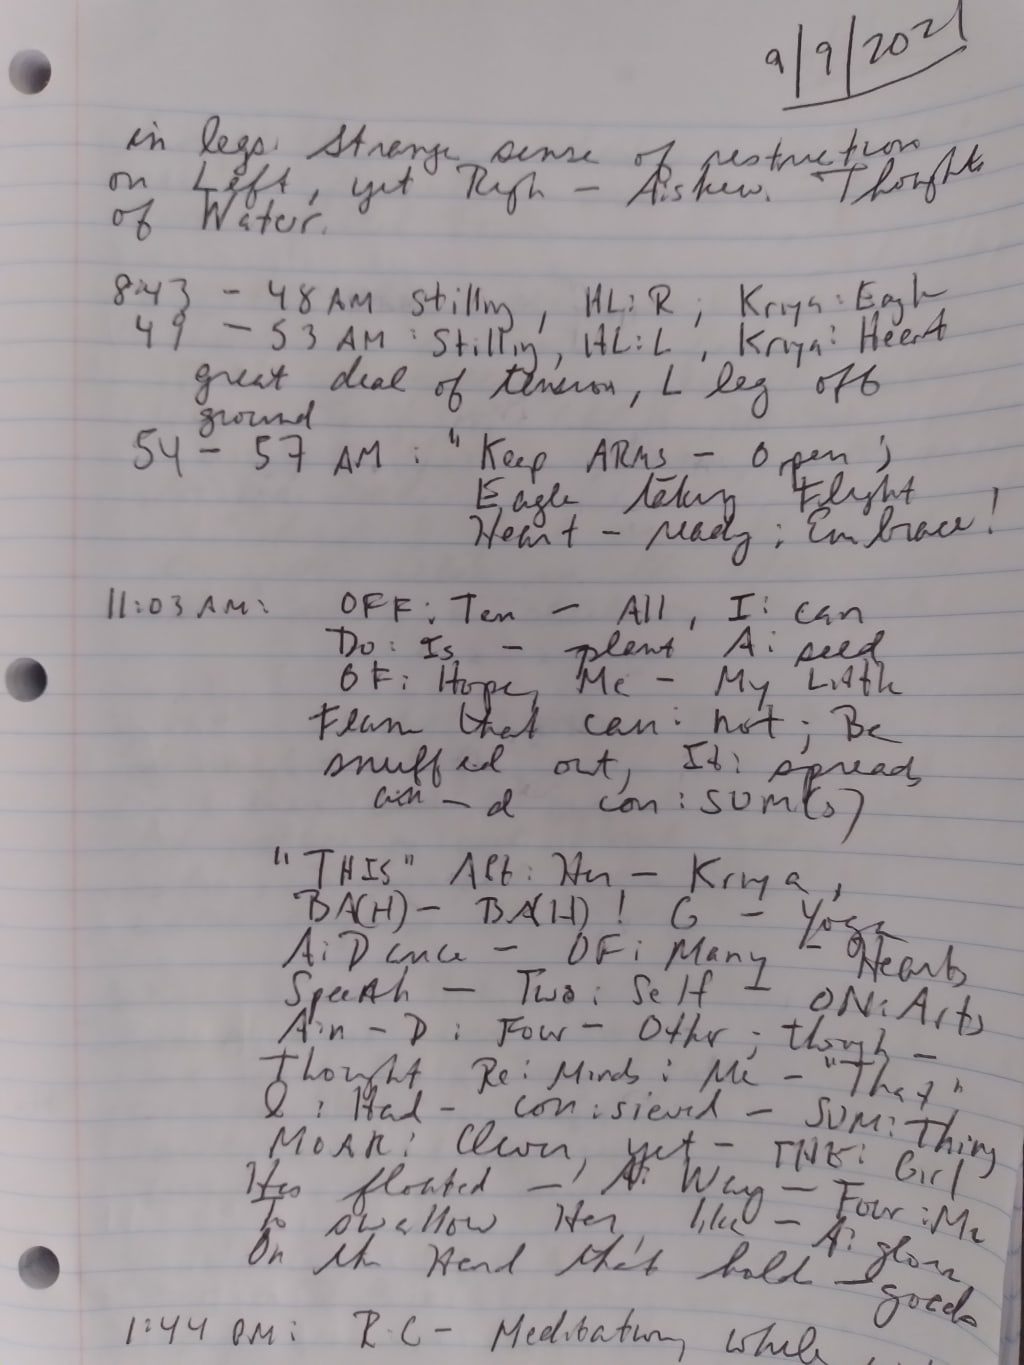 9/9/2021
in legs. Strange sense of restruction
on Left, yet Righ - Askew. Thoughts
of Water.
8:43 - 48 AM Stilling, HL: R; Kriya: Eagle
49 - 53 AM: Stilling, HL: L, Kriya: Heart
great deal of tension, L leg off
ground
54 - 57 AM: "Keep ARMS - Open;
Eagle taking Flight
Heart - ready; Embrace!
11:03 AM: OFF: Ten - All, I: can
Do: Is - plant A: seed
OF: Hope, Me - My Little
Flame that can: not; Be
snuffed out, It: spreads
ain - d con: SUM(s)
"THIS" Alt: Her - Kriya,
BA(H) - BA(H)! G - Yoga
A: Dance - OF: Many - Hearts
Speech - Two: Self - ON: Arts
Ain - D: Four - Other; though -
Thought Re: Minds: Me - "That"
I: Had - con: sieved - SUM: Thing
MOAR: Clever, yet - THE: Girl
Has floated - A: Way - Four: Me
To swallow Her, like - A: glove
On the Hand that hold - goods
1:44 PM: R.C - Meditation, while